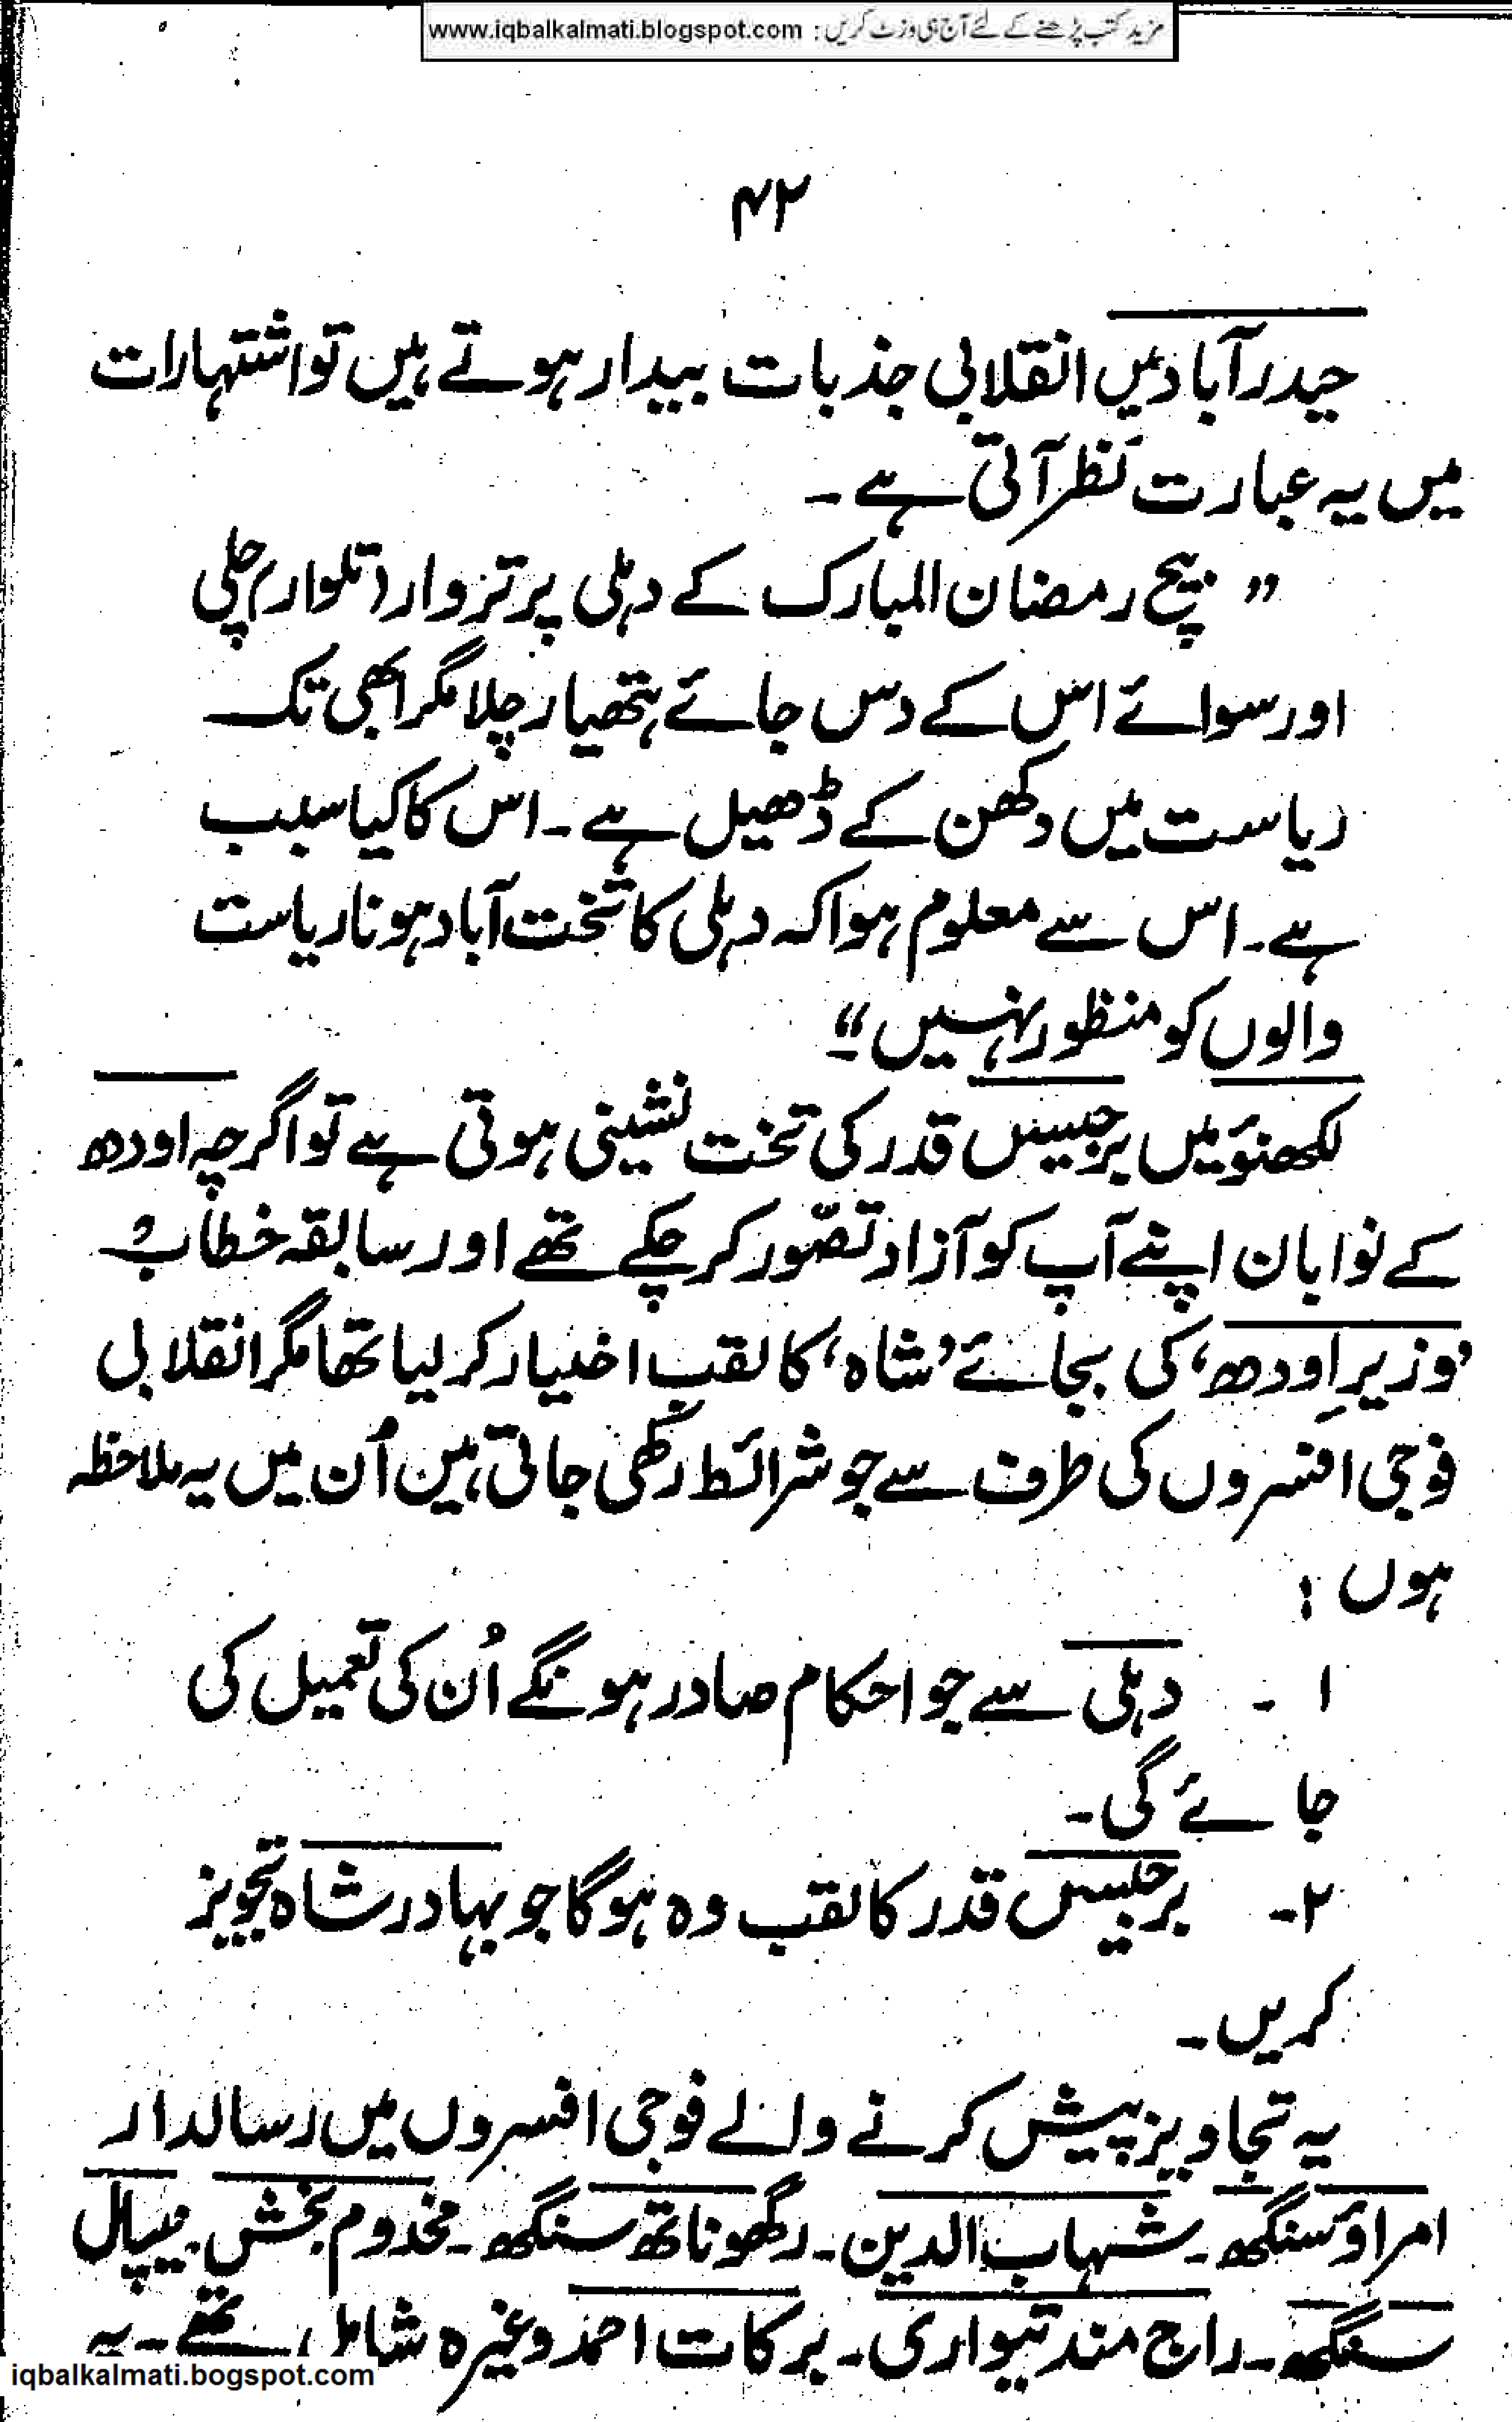 مزید کتب پڑھنے کے لئے آج ہی وزٹ کریں : www.iqbalkalmati.blogspot.com
۴۲
حیدرآباد میں انقلابی جذبات بیدار ہوتے ہیں تو اشتہارات
میں یہ عبارت نظر آتی ہے ۔
” بیچ رمضان المبارک کے دہلی پر تزوار (تلوار) چلی
اور سوائے اس کے دس جائے ہتھیار چلا مگر ابھی تک
ریاست میں دکھن کے ڈھیل ہے ۔ اس کا کیا سبب
ہے ۔ اس سے معلوم ہوا کہ دہلی کا تخت آباد ہونا ریاست
والوں کو منظور نہیں “
لکھنؤ میں برجیس قدر کی تخت نشینی ہوتی ہے تو اگرچہ اودھ
کے نوابان اپنے آپ کو آزاد تصّور کر چکے تھے اور سابقہ خطاب
’وزیرِ اودھ‘ کی بجائے ’شاہ‘ کا لقب اختیار کر لیا تھا مگر انقلابی
فوجی افسروں کی طرف سے جو شرائط رکھی جاتی ہیں اُن میں یہ ملاحظہ
ہوں :
۱ ۔ دہلی سے جو احکام صادر ہونگے اُن کی تعمیل کی
جائے گی ۔
۲ ۔ برجیس قدر کا لقب وہ ہوگا جو بہادر شاہ تجویز
کریں ۔
یہ تجاویز پیش کرنے والے فوجی افسروں میں رسالدار
امراؤ سنگھ ۔ شہاب الدین ۔ رگھوناتھ سنگھ ۔ مخدوم بخش ۔ میپال
سنگھ ۔ راج مند تیواری ۔ برکات احمد وغیرہ شامل تھے ۔ یہ
iqbalkalmati.bogspot.com